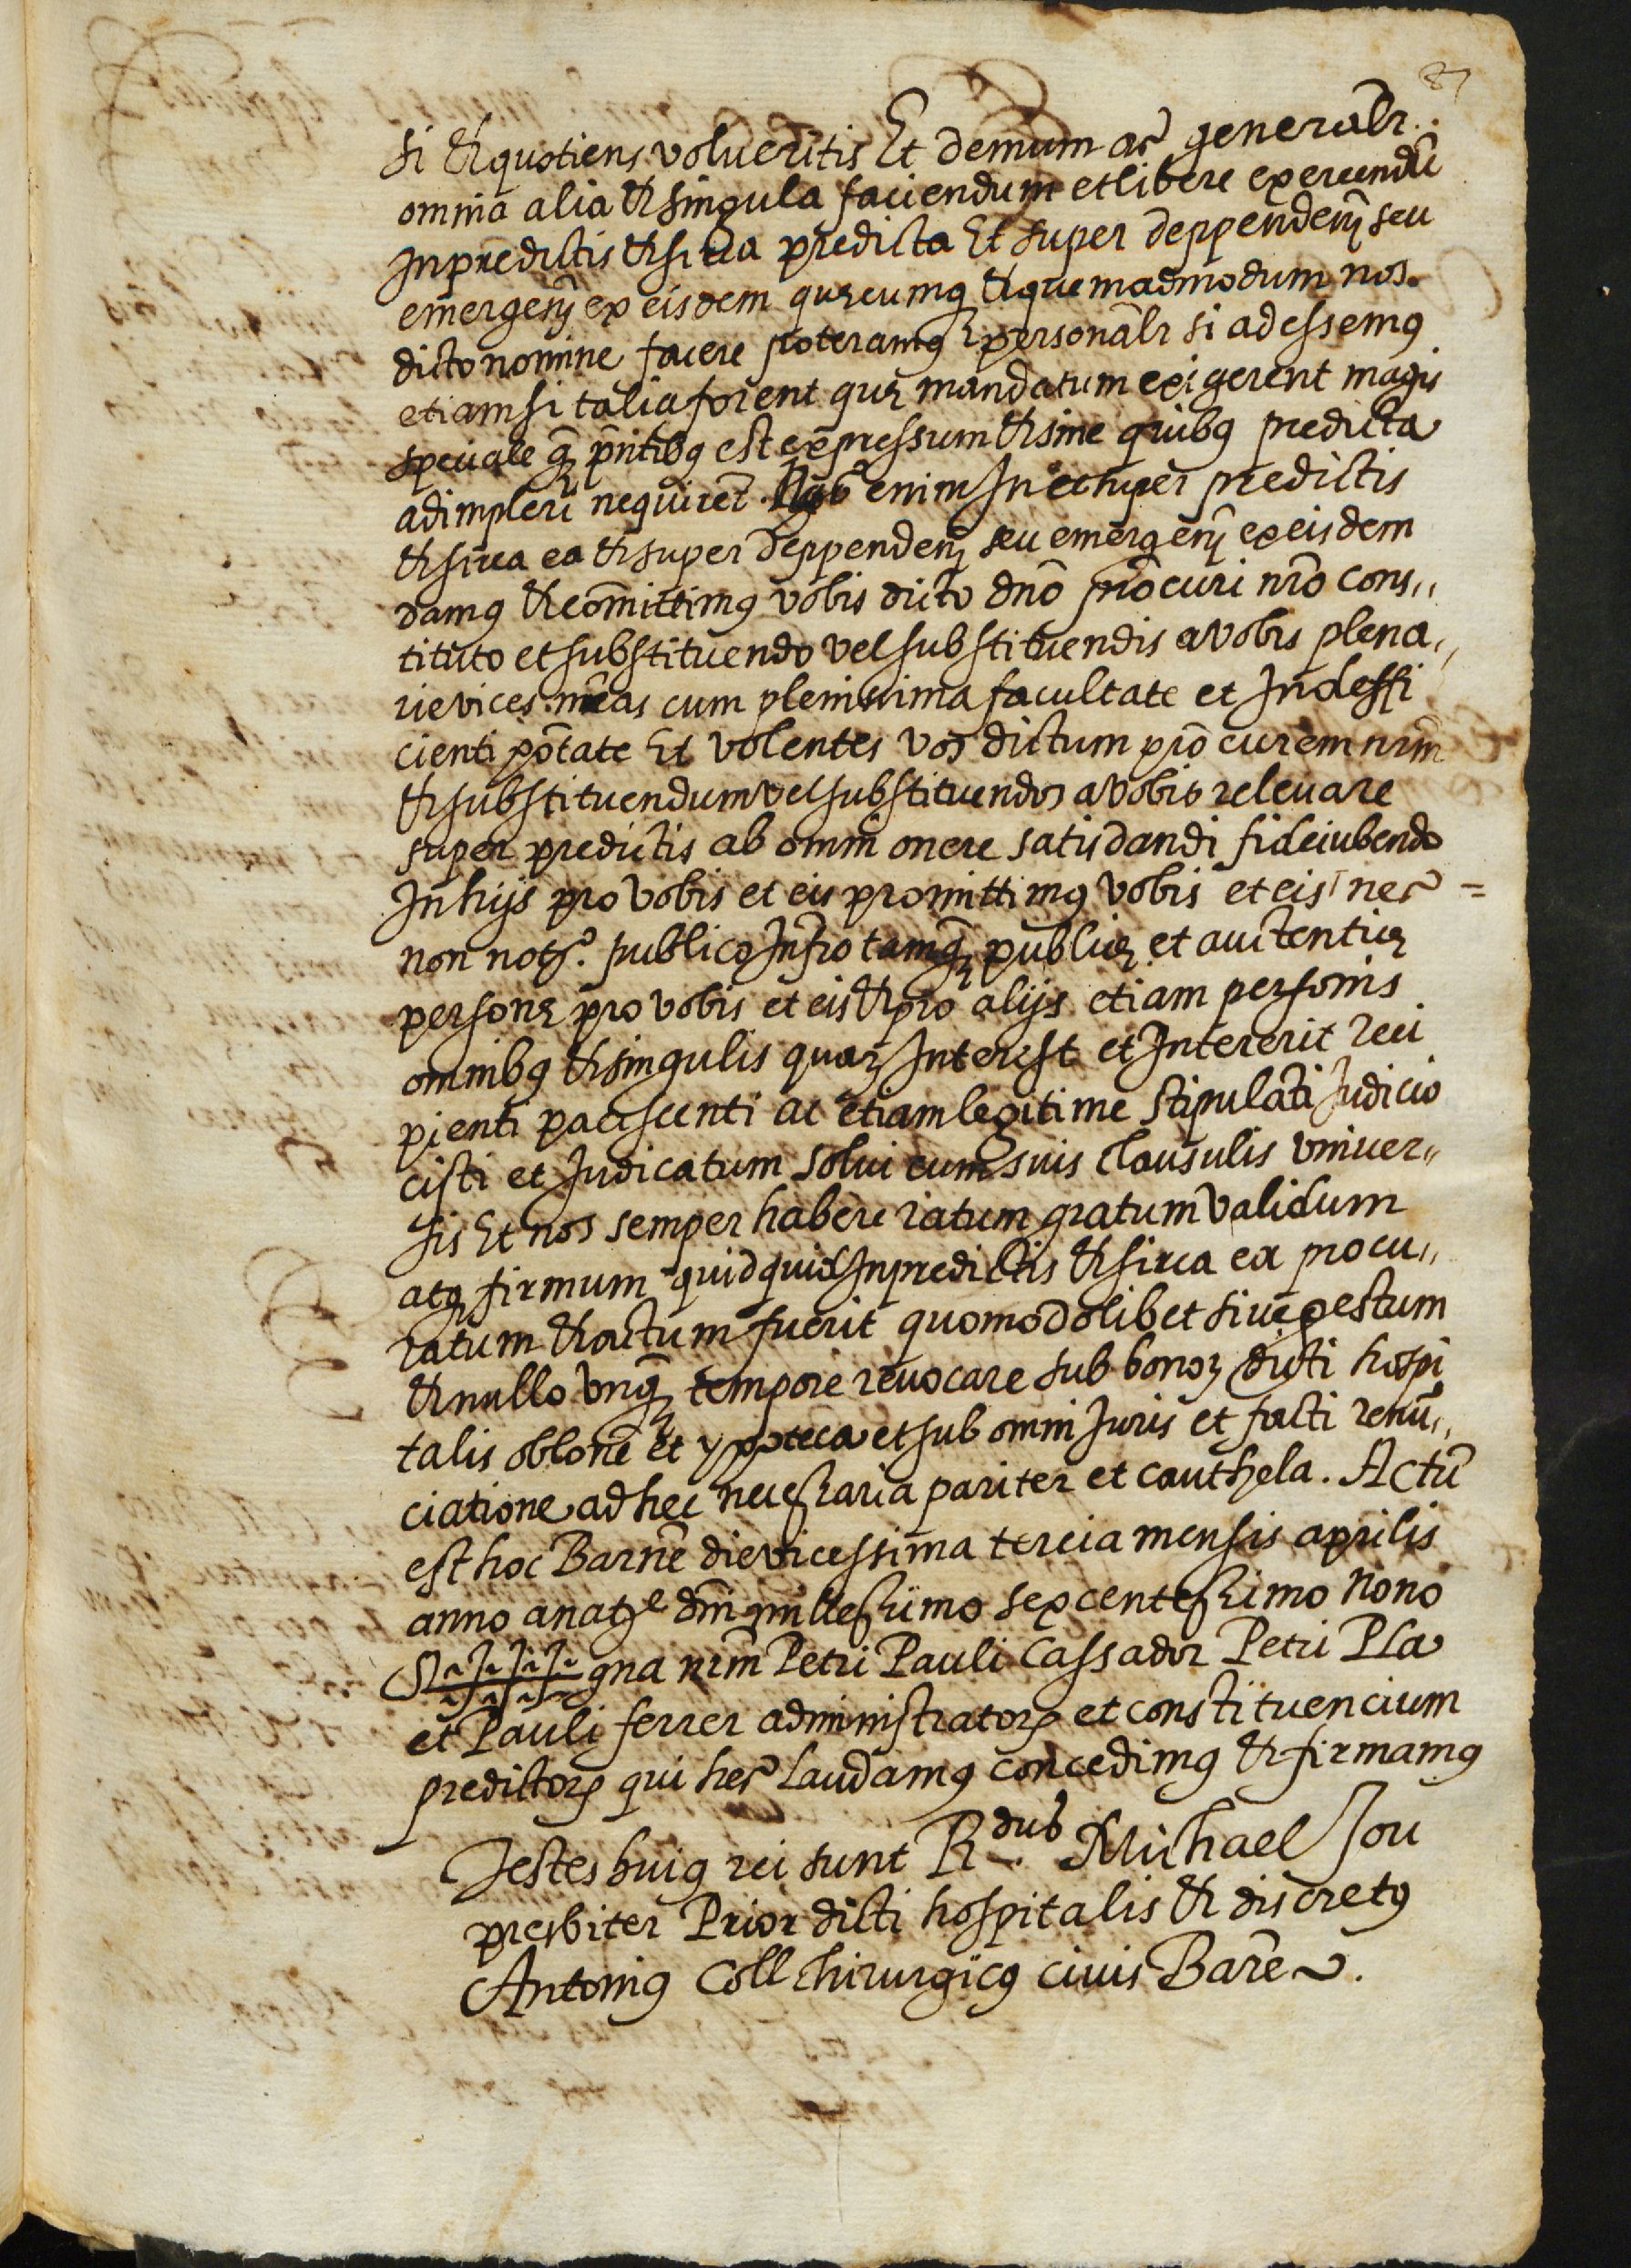 87
si et quotiens volueritis Et demum ac generalr̄.
omnia alia et singula faciendum et libere exercendū
In predictis et sirca predicta Et super deppendenꝭ seu
emergenꝭ ex eisdem quęcumqꝫ et quemadmodum nos.
dicto nomine facere poteramꝰ personalr̄ si adessemꝰ
etiam si talia forent quę mandatum exigerent magis
speciale qꝫ p̄ntibꝰ est expressum et sine quibꝰ predicta
adimpleri nequirēt. Nos enim In et super predictis
et sirca ea et super deppendenꝭ seu emergenꝭ ex eisdem
damꝰ et com̄ittimꝰ vobis dicto dn̄o procur̄i nr̄o cons,,
tituto et substituendo vel substituendis a vobis plena,,
rie vices n̄ras cum plenissima facultate et Indeffi
cienti pōtate Et volentes vos dictum procur̄em nr̄m
et substituendum vel substituendos a vobis releuare
super predictis ab omni onere satisdandi fideiubendo
In hijs pro vobis et eis promittimꝰ vobis et eis nec =
non notꝰ. publico Infr̄o tamqꝫ publicę et autenticę
personę pro vobis et eis et pro alijs etiam personis
omnibꝰ et singulis quaꝝ Interest et Intererit reci
pienti pacissenti ac etiam legitime stipulāti Judicio
cisti et Judicatum solui cum suis clausulis vniuer,,
sis Et nos semper habere ratum gratum validum
atqꝫ firmum quidquid In predictis et sirca ea procu,,
ratum et actum fuerit quomodolibet siue gestum
et nullo vnqꝫ tempore reuocare sub bonoꝝ dicti hospi
talis oblōne et ypoteca et sub omni Juris et facti renū,,
ciatione ad hec necessaria pariter et cauthela. Actū
est hoc Barnē die vicessima tercia mensis aprilis
anno a natᵉ dn̄i millessimo sexcentessimo nono
Signa nr̄m Petri Pauli Cassador Petri Pla
et Pauli ferrer administratoꝝ et constituencium
predictoꝝ qui hec Laudamꝰ concedimꝰ et firmamꝰ
Testes huiꝰ rei sunt R.ᵈᵘˢ Michael Jou
presbiter Prior dicti hospitalis et discretꝰ
Antoniꝰ Coll chirurgicꝰ ciuis Barē.